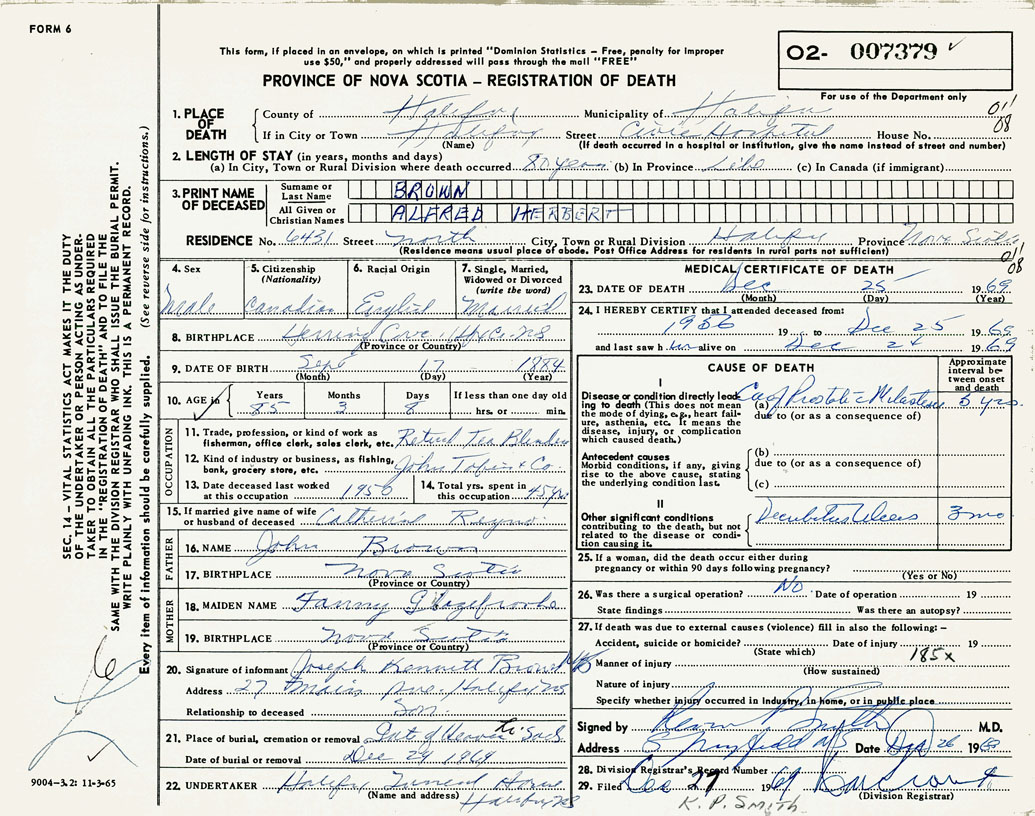 FORM 6
This form, if placed in an envelope, on which is printed "Dominion Statistics – Free, penalty for improper
use $50," and properly addressed will pass through the mail "FREE"
PROVINCE OF NOVA SCOTIA – REGISTRATION OF DEATH
O2- 007379
For use of the Department only
011
08
1. PLACE OF DEATH { County of Halifax Municipality of Halifax
If in City or Town Halifax Street Civic Hospital House No.
(Name) (If death occurred in a hospital or institution, give the name instead of street and number)
2. LENGTH OF STAY (in years, months and days)
(a) In City, Town or Rural Division where death occurred 80 years (b) In Province Life (c) In Canada (if immigrant)
3. PRINT NAME OF DECEASED
Surname or Last Name BROWN
All Given or Christian Names ALFRED HERBERT
RESIDENCE No. 6431 Street North City, Town or Rural Division Halifax Province Nova Scotia
(Residence means usual place of abode. Post Office Address for residents in rural parts not sufficient)
011
08
4. Sex
Male
5. Citizenship
(Nationality)
Canadian
6. Racial Origin
English
7. Single, Married,
Widowed or Divorced
(write the word)
Married
8. BIRTHPLACE Herring Cove, Hfx Co. NS
(Province or Country)
9. DATE OF BIRTH Sept 17 1884
(Month) (Day) (Year)
10. AGE in Years Months Days If less than one day old
85 3 8 hrs. or min.
OCCUPATION
11. Trade, profession, or kind of work as
fisherman, office clerk, sales clerk, etc. Retired Tea Blender
12. Kind of industry or business, as fishing,
bank, grocery store, etc. John Tobin & Co.
13. Date deceased last worked
at this occupation 1950
14. Total yrs. spent in
this occupation 45 yrs
15. If married give name of wife
or husband of deceased Catherine Reyno
FATHER
16. NAME John Brown
17. BIRTHPLACE Nova Scotia
(Province or Country)
MOTHER
18. MAIDEN NAME Fanny
19. BIRTHPLACE Nova Scotia
(Province or Country)
20. Signature of informant Joseph Kennett Brown
Address 27 Main Ave. Halifax NS.
Relationship to deceased Son.
21. Place of burial, cremation or removal Gate of Heaven Sack
Date of burial or removal Dec 29 1969
22. UNDERTAKER Halifax Funeral Home
(Name and address) Halifax NS
MEDICAL CERTIFICATE OF DEATH
23. DATE OF DEATH Dec 25 1969
(Month) (Day) (Year)
24. I HEREBY CERTIFY that I attended deceased from:
1956 19 to Dec 25 1969
and last saw him alive on Dec 24 1969
CAUSE OF DEATH
Approximate
interval be-
tween onset
and death
I
Disease or condition directly lead-
ing to death (This does not mean
the mode of dying, e.g., heart fail-
ure, asthenia, etc. It means the
disease, injury, or complication
which caused death.)
(a) Ca of Prostate Metastases 5 yrs.
due to (or as a consequence of)
Antecedent causes
Morbid conditions, if any, giving
rise to the above cause, stating
the underlying condition last.
(b)
due to (or as a consequence of)
(c)
II
Other significant conditions
contributing to the death, but not
related to the disease or condi-
tion causing it.
Decubitus Ulcers 3 mo
25. If a woman, did the death occur either during
pregnancy or within 90 days following pregnancy?
(Yes or No)
26. Was there a surgical operation? No Date of operation 19
State findings Was there an autopsy?
27. If death was due to external causes (violence) fill in also the following: –
Accident, suicide or homicide? Date of injury 19
(State which) 185x
Manner of injury
(How sustained)
Nature of injury
Specify whether injury occurred in industry, in home, or in public place
Signed by Smith M.D.
Address Date Dec 26 196
28. Division Registrar's Record Number
29. Filed Dec 27 1969
(Division Registrar)
K. P. SMITH
SEC. 14 – VITAL STATISTICS ACT MAKES IT THE DUTY
OF THE UNDERTAKER OR PERSON ACTING AS UNDER-
TAKER TO OBTAIN ALL THE PARTICULARS REQUIRED
IN THE "REGISTRATION OF DEATH" AND TO FILE THE
SAME WITH THE DIVISION REGISTRAR WHO SHALL ISSUE THE BURIAL PERMIT.
WRITE PLAINLY WITH UNFADING INK. THIS IS A PERMANENT RECORD.
Every item of information should be carefully supplied. (See reverse side for instructions.)
9004-3.2: 11-3-65